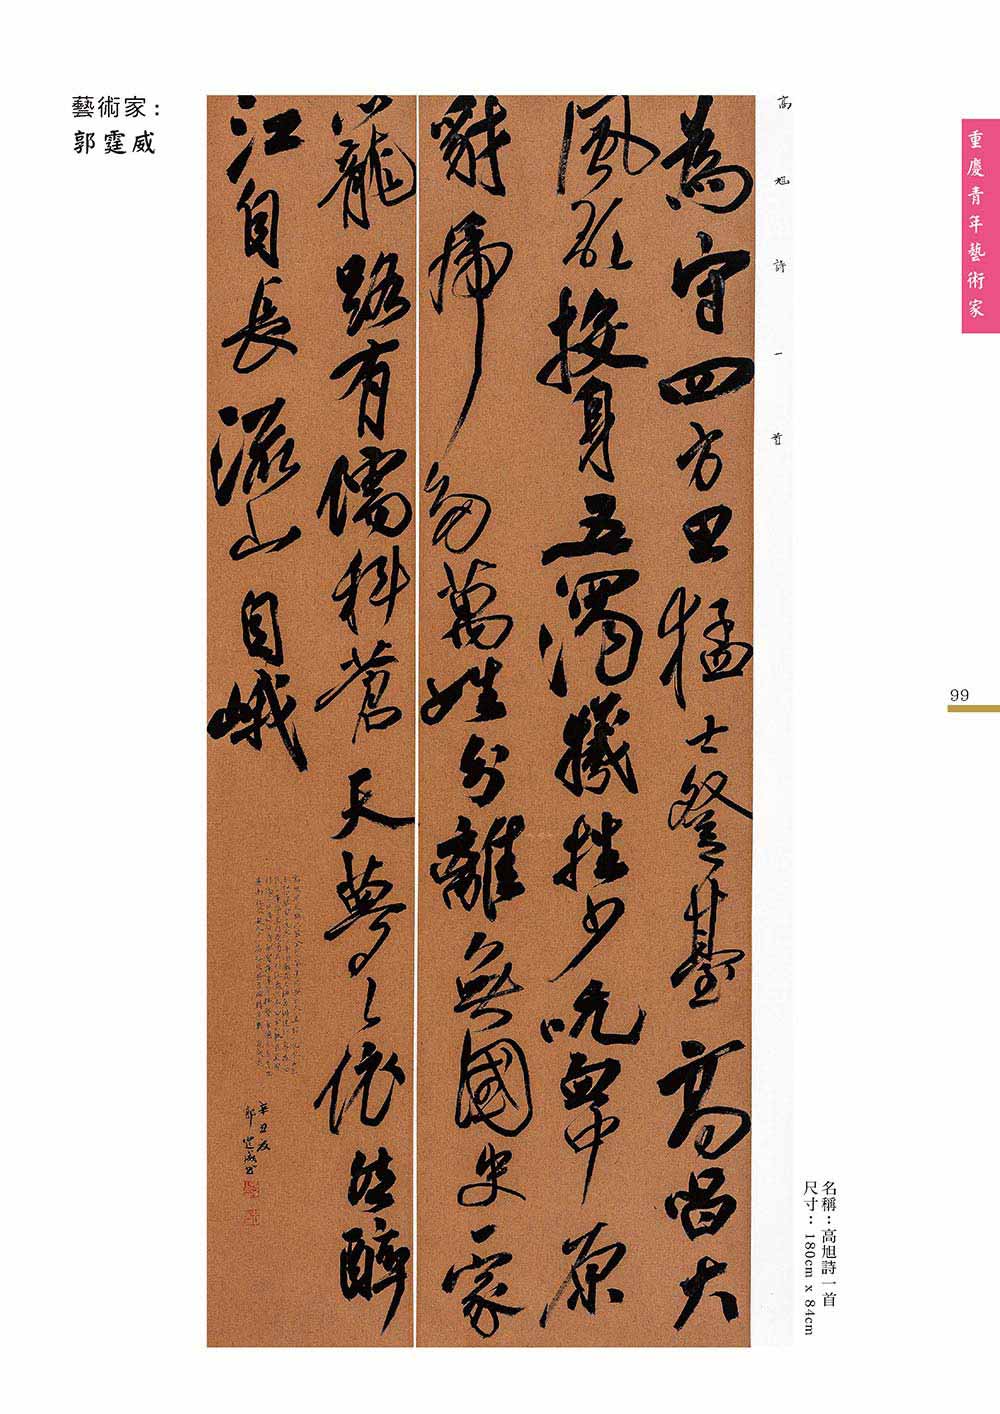 藝術家：
郭霆威
重慶青年藝術家
高旭詩一首
為守四方思猛士登臺高唱大
風歌投身五濁犧牲少吮血中原
豺虎多萬姓分離無國史一家
籠路有儒科蒼天夢々依然醉
江自長流山自峨
辛丑夏
郭霆威書
99
名稱：高旭詩一首
尺寸：180cm x 84cm